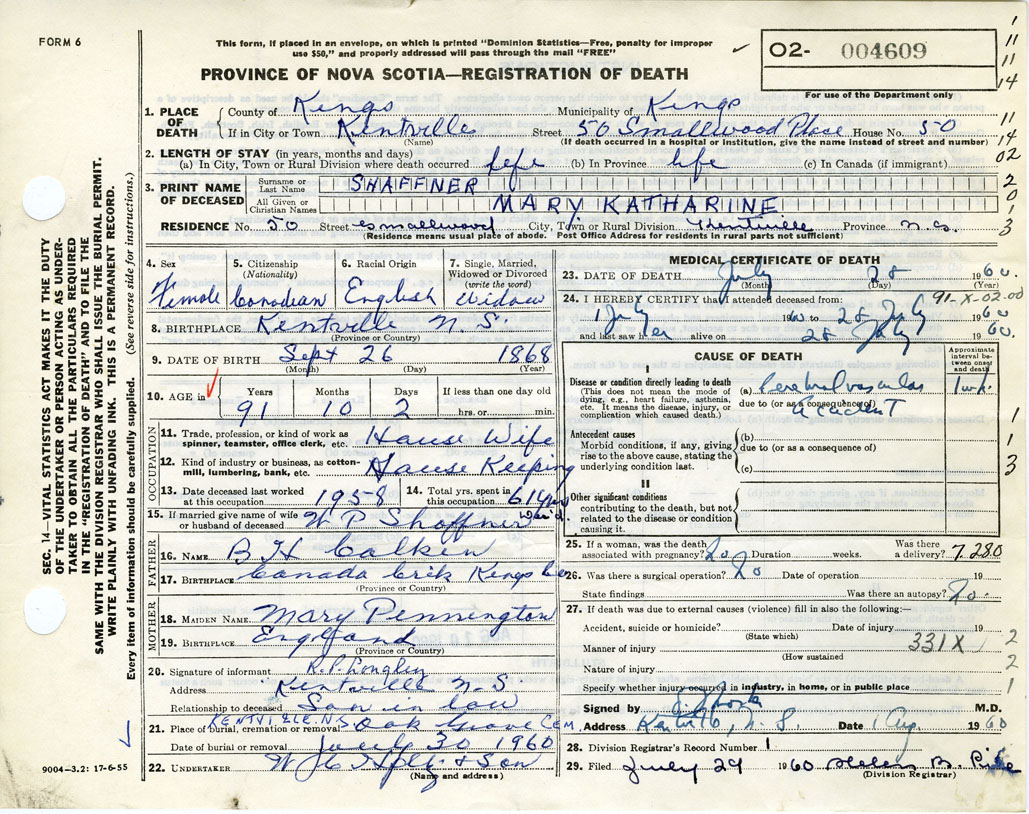 FORM 6
This form, if placed in an envelope, on which is printed "Dominion Statistics—Free, penalty for improper
use $50," and properly addressed will pass through the mail "FREE"
O2- 004609
For use of the Department only
PROVINCE OF NOVA SCOTIA—REGISTRATION OF DEATH
1. PLACE OF DEATH
County of Kings Municipality of Kings
If in City or Town Kentville Street 50 Smallwood Place House No. 50
(Name) (If death occurred in a hospital or institution, give the name instead of street and number)
2. LENGTH OF STAY (in years, months and days)
(a) In City, Town or Rural Division where death occurred life (b) In Province life (c) In Canada (if immigrant)
3. PRINT NAME OF DECEASED
Surname or Last Name SHAFFNER
All Given or Christian Names MARY KATHARINE
RESIDENCE No. 50 Street Smallwood City, Town or Rural Division Kentville Province N.S.
(Residence means usual place of abode. Post Office Address for residents in rural parts not sufficient)
4. Sex Female
5. Citizenship (Nationality) Canadian
6. Racial Origin English
7. Single, Married, Widowed or Divorced (write the word) Widow
8. BIRTHPLACE Kentville N.S.
(Province or Country)
9. DATE OF BIRTH Sept 26 1868
(Month) (Day) (Year)
10. AGE in ✓ Years 91 Months 10 Days 2 If less than one day old hrs. or min.
OCCUPATION
11. Trade, profession, or kind of work as spinner, teamster, office clerk, etc. House Wife
12. Kind of industry or business, as cotton-mill, lumbering, bank, etc. House Keeping
13. Date deceased last worked at this occupation 1958
14. Total yrs. spent in this occupation 61 yrs
15. If married give name of wife or husband of deceased W P Shaffner
FATHER
16. NAME B H Calkin
17. BIRTHPLACE Canada Crik Kings Co
(Province or Country)
MOTHER
18. MAIDEN NAME Mary Pennington
19. BIRTHPLACE England
(Province or Country)
20. Signature of informant R.P. Longley
Address Kentville N.S.
Relationship to deceased Son in law
21. Place of burial, cremation or removal KENTVILLE. N.S. Oak Grove CEM
Date of burial or removal July 30 1960
22. UNDERTAKER & Son
(Name and address)
MEDICAL CERTIFICATE OF DEATH
23. DATE OF DEATH July 28 1960.
(Month) (Day)
24. I HEREBY CERTIFY that I attended deceased from: 91-X-02.00
1 July 1960 to 28 July 1960
and last saw her alive on 28 July 1960.
CAUSE OF DEATH
Approximate interval between onset and death
I
Disease or condition directly leading to death
(This does not mean the mode of dying, e.g., heart failure, asthenia, etc. It means the disease, injury, or complication which caused death.)
(a) Cerebral vascular accident 1 wk.
due to (or as a consequence of)
Antecedent causes
Morbid conditions, if any, giving rise to the above cause, stating the underlying condition last.
(b)
due to (or as a consequence of)
(c)
II
Other significant conditions
contributing to the death, but not related to the disease or condition causing it.
25. If a woman, was the death associated with pregnancy? No Duration weeks. Was there a delivery? 7.280
26. Was there a surgical operation? No Date of operation 19
State findings Was there an autopsy? No.
27. If death was due to external causes (violence) fill in also the following:—
Accident, suicide or homicide? Date of injury 19
(State which)
Manner of injury 331X
(How sustained)
Nature of injury
Specify whether injury occurred in industry, in home, or in public place
Signed by M.D.
Address Kentville, N.S. Date 1 Aug 1960
28. Division Registrar's Record Number 1
29. Filed July 29 1960 Helen B.
(Division Registrar)
9004-3.2: 17-6-55
SEC. 14—VITAL STATISTICS ACT MAKES IT THE DUTY
OF THE UNDERTAKER OR PERSON ACTING AS UNDER-
TAKER TO OBTAIN ALL THE PARTICULARS REQUIRED
IN THE "REGISTRATION OF DEATH" AND TO FILE THE
SAME WITH THE DIVISION REGISTRAR WHO SHALL ISSUE THE BURIAL PERMIT.
WRITE PLAINLY WITH UNFADING INK. THIS IS A PERMANENT RECORD.
Every item of information should be carefully supplied. (See reverse side for instructions.)
1
11
11
14
11
14
02
2
0
1
3
1
1
3
2
2
1